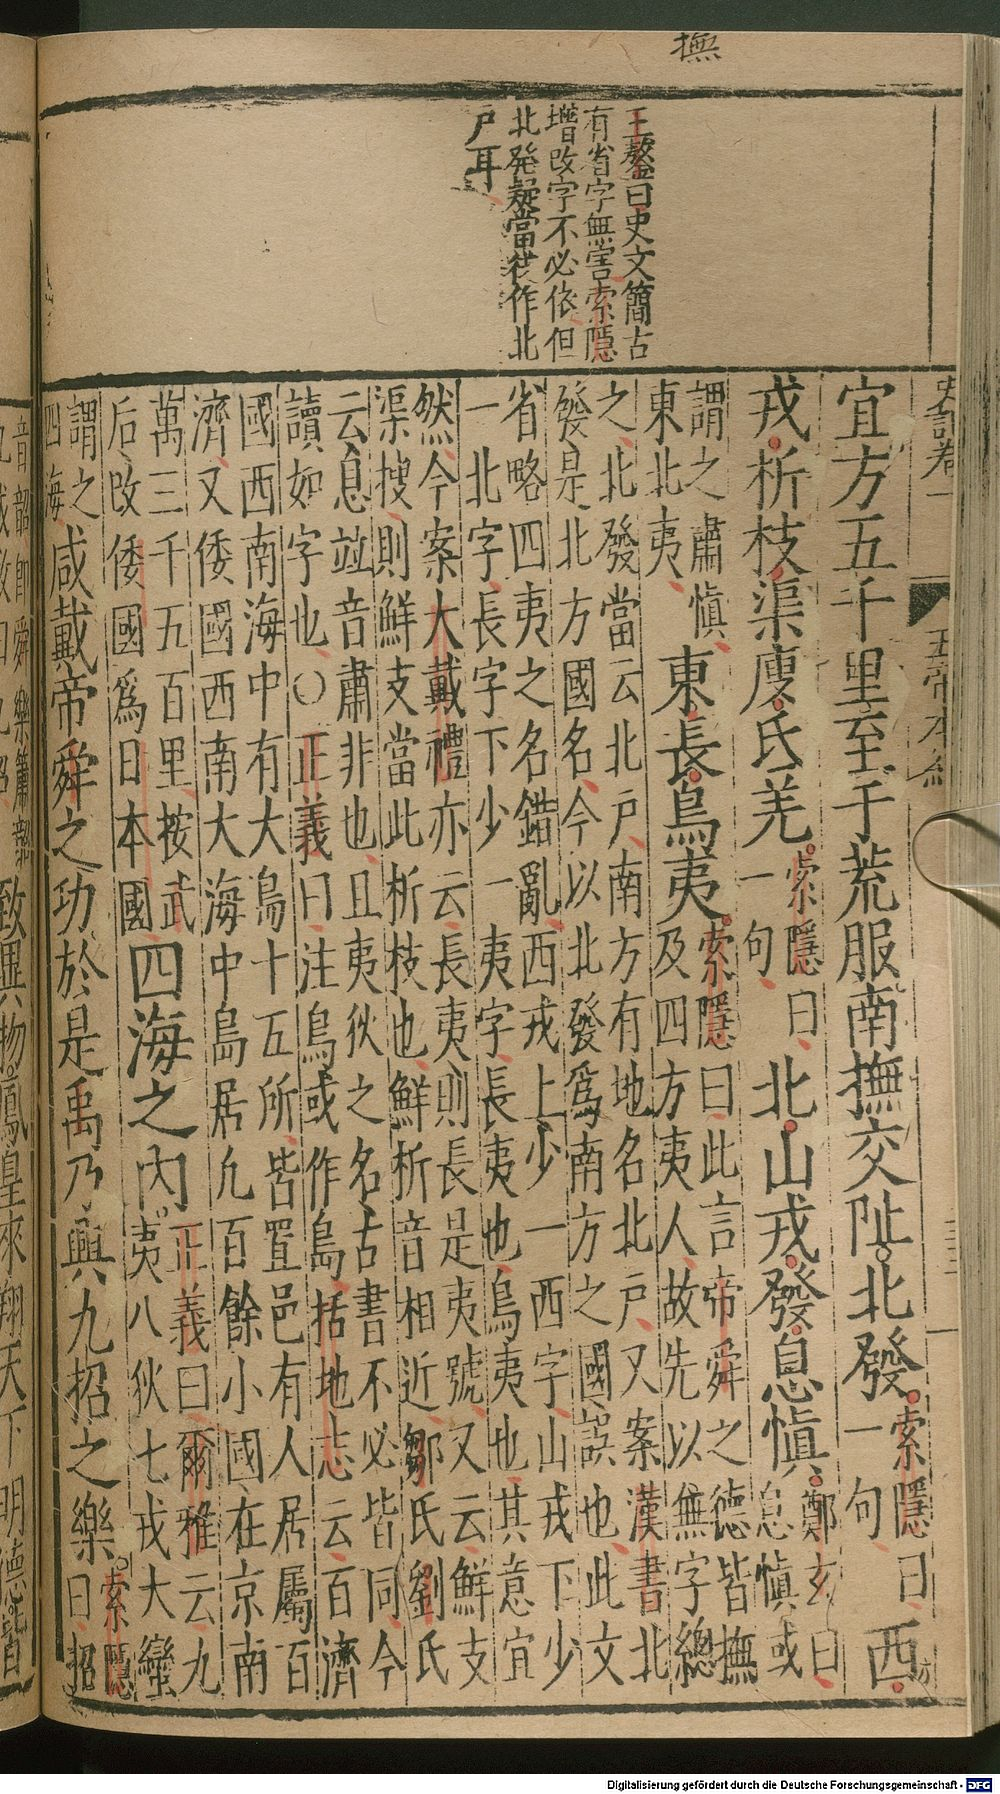 撫
王鏊曰史文簡古
有省字無害索隱
增改字不必依但
北發疑當從作北
戶耳
史記卷一 五帝本紀
宜方五千里至于荒服南撫交阯北發索隱曰一句西
戎析枝渠廋氐羌索隱曰一句北山戎發息慎鄭玄曰息慎或
謂之肅慎東北夷東長鳥夷索隱曰此言帝舜之德皆撫及四方夷人故先以無字總
之北發當云北戶南方有地名北戶又案漢書北
發是北方國名今以北發爲南方之國誤也此文
省略四夷之名錯亂西戎上少一西字山戎下少
一北字長字下少一夷字長夷也鳥夷也其意宜
然今案大戴禮亦云長夷則長是夷號又云鮮支
渠搜則鮮支當此析枝也鮮析音相近鄒氏劉氏
云息竝音肅非也且夷狄之名古書不必皆同今
讀如字也〇正義曰注鳥或作島括地志云百濟
國西南海中有大島十五所皆置邑有人居屬百
濟又倭國西南大海中島居凡百餘小國在京南
萬三千五百里按武
后改倭國爲日本國四海之內正義曰爾雅云九夷八狄七戎六蠻
謂之四海咸戴帝舜之功於是禹乃興九招之樂索隱曰招
音韶卽舜樂簫韶
致異物鳳皇來翔天下明德皆
Digitalisierung gefördert durch die Deutsche Forschungsgemeinschaft - DFG